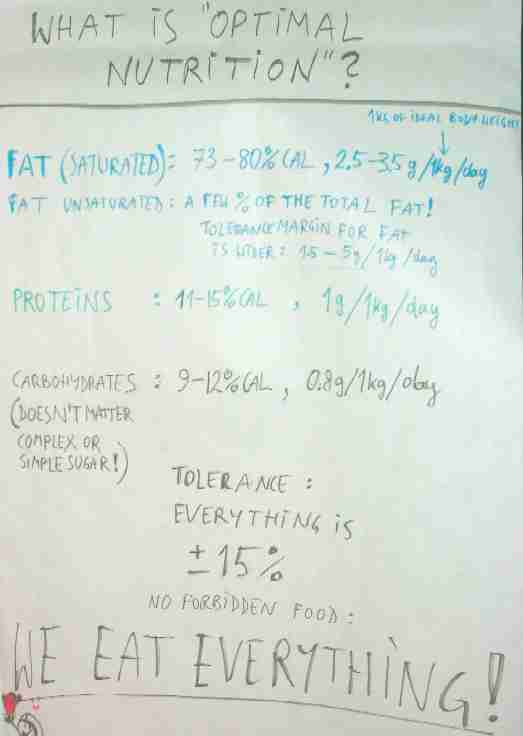 WHAT IS "OPTIMAL
NUTRITION"?
1KG OF IDEAL BODY WEIGHT
FAT (SATURATED): 73-80% CAL, 2.5-3.5 g/1kg/day
FAT UNSATURATED: A FEW % OF THE TOTAL FAT!
TOLERANCE MARGIN FOR FAT
IS WIDER: 1.5-5g/1kg/day
PROTEINS : 11-15% CAL, 1g/1kg/day
CARBOHYDRATES : 9-12% CAL, 0.8g/1kg/day
(DOESN'T MATTER
COMPLEX OR
SIMPLE SUGAR!)
TOLERANCE :
EVERYTHING IS
±15%
NO FORBIDDEN FOOD:
WE EAT EVERYTHING!